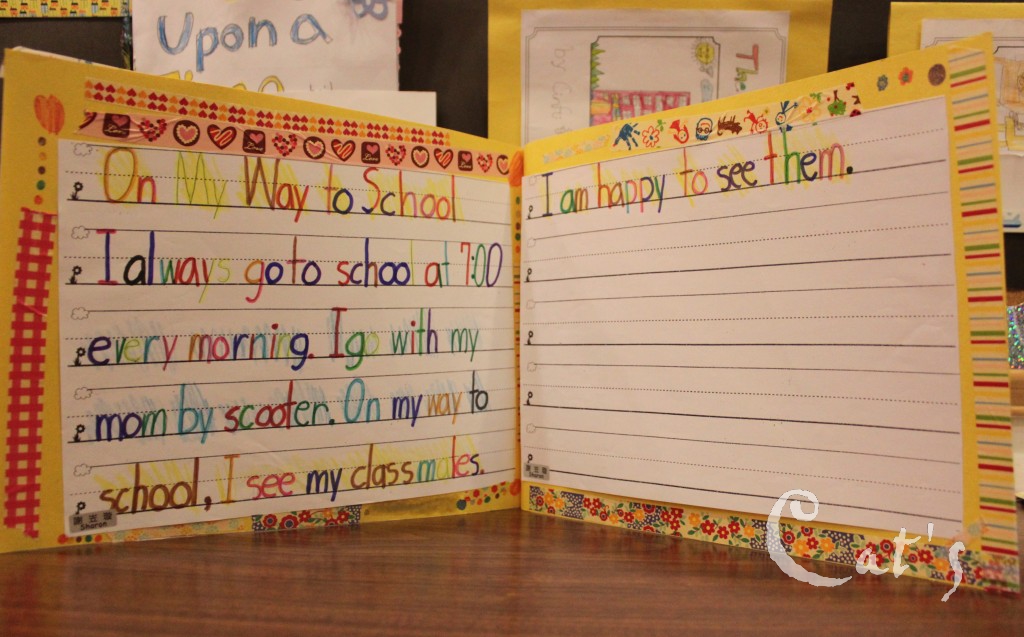 Upon a
On My Way to School
I always go to school at 7:00
every morning. I go with my
mom by scooter. On my way to
school, I see my classmates.
Sharon
I am happy to see them.
Sharon
Cat's